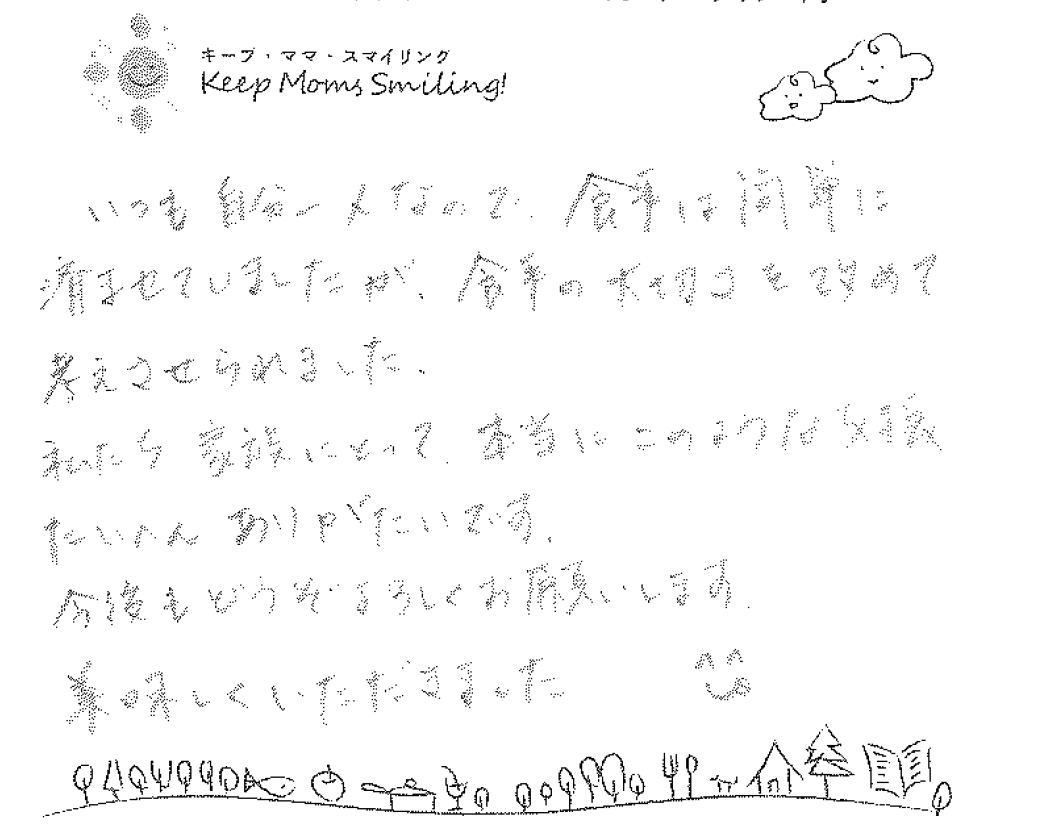 キープ・ママ・スマイリング
Keep Moms Smiling!
いつも自分一人なので、食事は簡単に
済ませてしましたが、食事の大切さを改めて
考えさせられました。
私たち家族にとって、本当にこのような支援
たいへんありがたいです。
今後もどうぞよろしくお願いします。
美味しくいただきました